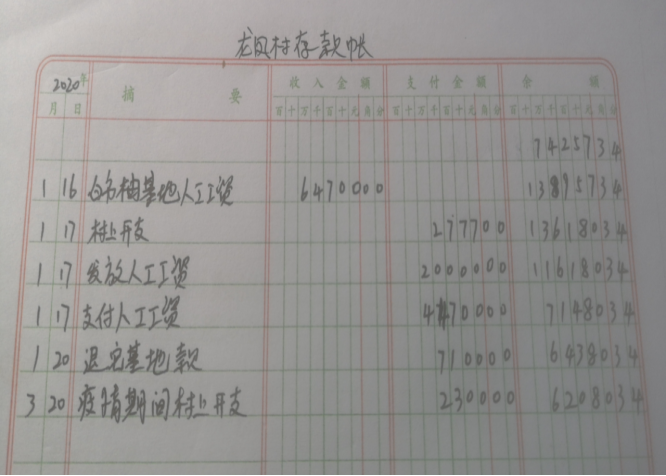 龙凤村存款帐
2020年 摘要 收入金额 支付金额 余额
月 日 百十万千百十元角分 百十万千百十元角分 百十万千百十元角分
7425734
1 16 白布柚基地人工工资 6470000 13895734
1 17 村上开支 277700 13618034
1 17 发放人工工资 2000000 11618034
1 17 支付人工工资 4470000 7148034
1 20 退宅基地款 710000 6438034
3 20 疫情期间村上开支 230000 6208034